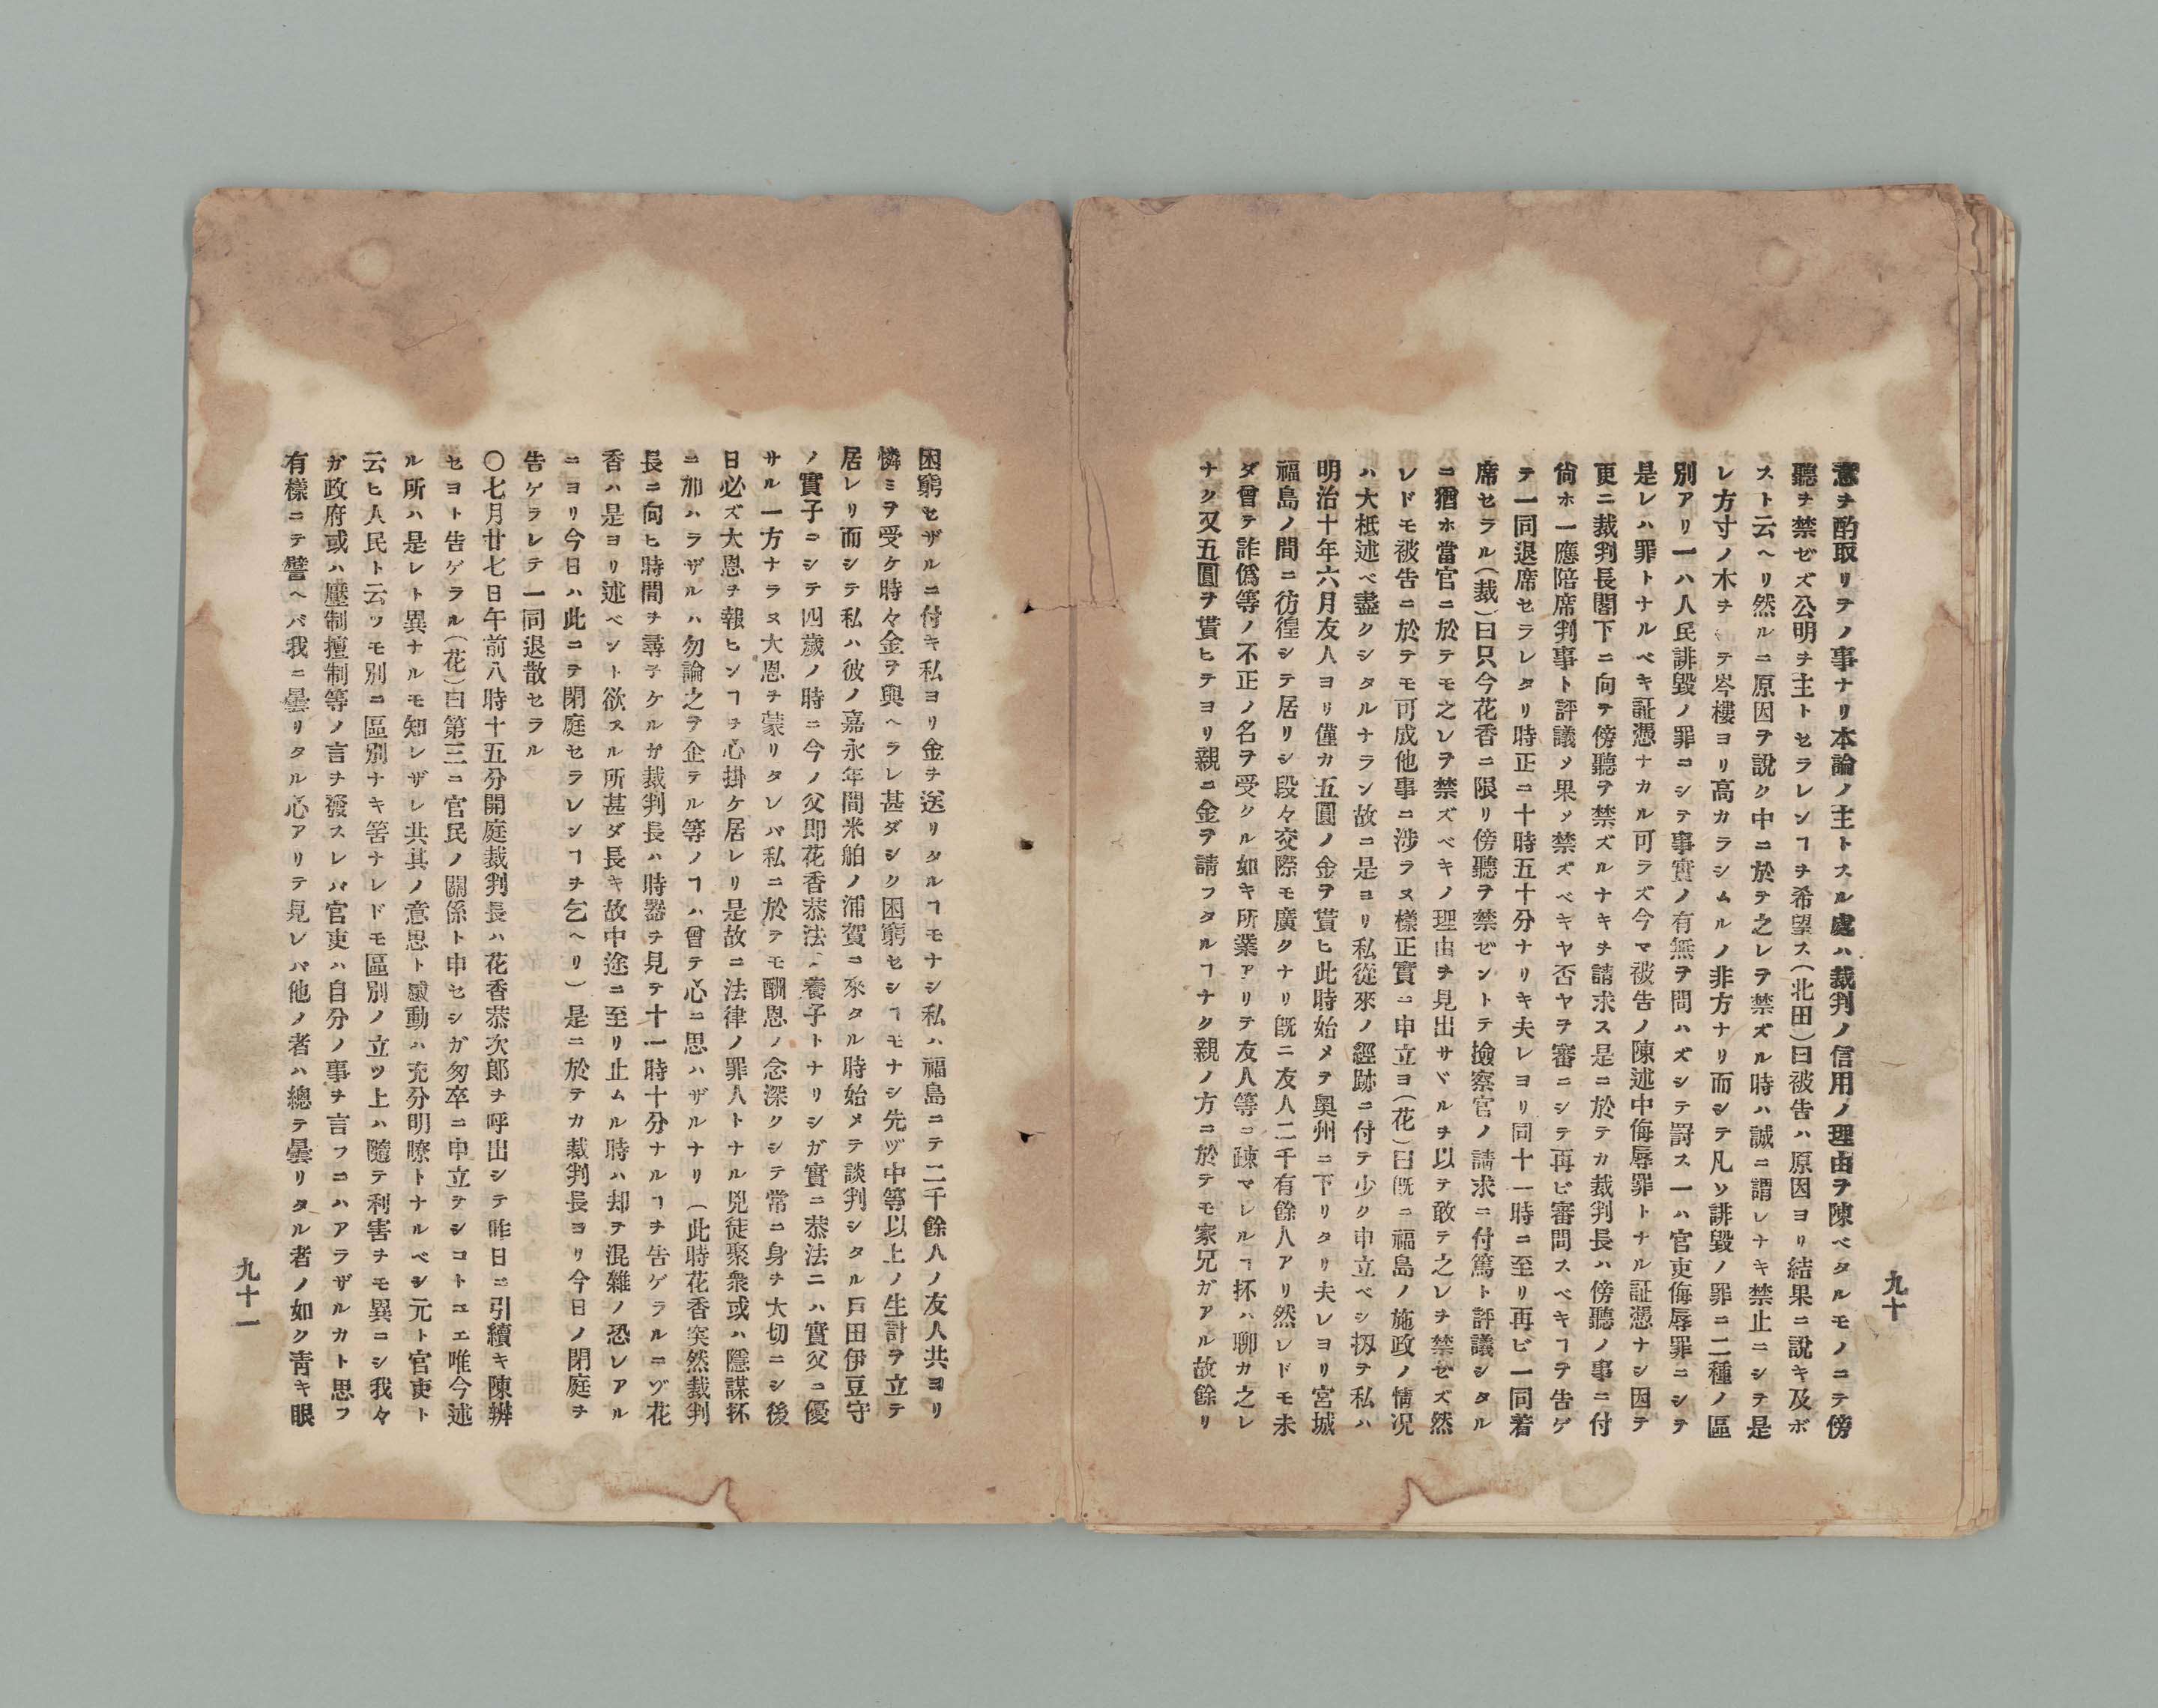 意ヲ酌取リテノ事ナリ本論ノ主トスル處ハ裁判ノ信用ノ理由ヲ陳ベタルモノニテ傍
聽ヲ禁ゼズ公明ヲ主トセラレンヿヲ希望ス(北田)曰被告ハ原因ヨリ結果ニ說キ及ボ
スト云ヘリ然ルニ原因ヲ說ク中ニ於テ之レヲ禁ズル時ハ誠ニ謂レナキ禁止ニシテ是
レ方寸ノ木ヲ テ岑樓ヨリ高カラシムルノ非方ナリ而シテ凡ソ誹毀ノ罪ニ二種ノ區
別アリ一ハ人民誹毀ノ罪ニシテ事實ノ有無ヲ問ハズシテ罸ス一ハ官吏侮辱罪ニシテ
是レハ罪トナルベキ証憑ナカル可ラズ今マ被告ノ陳述中侮辱罪トナル証憑ナシ因テ
更ニ裁判長閣下ニ向テ傍聽ヲ禁ズルナキヲ請求ス是ニ於テカ裁判長ハ傍聽ノ事ニ付
尙ホ一應陪席判事ト評議ノ果メ禁ズベキヤ否ヤヲ審ニシテ再ビ審問スベキヿヲ告ゲ
テ一同退席セラレタリ時正ニ十時五十分ナリキ夫レヨリ同十一時ニ至リ再ビ一同着
席セラル(裁)曰只今花香ニ限リ傍聽ヲ禁ゼントテ撿察官ノ請求ニ付篤ト評議シタル
ニ猶ホ當官ニ於テモ之レヲ禁ズベキノ理由ヲ見出サヾルヲ以テ敢テ之レヲ禁セズ然
レドモ被告ニ於テモ可成他事ニ涉ラヌ樣正實ニ申立ヨ(花)曰既ニ福島ノ施政ノ情况
ハ大柢述ベ盡クシタルナラン故ニ是ヨリ私從來ノ經跡ニ付テ少ク申立ベシ扨テ私ハ
明治十年六月友人ヨリ僅カ五圓ノ金ヲ貰ヒ此時始メテ奧州ニ下リタリ夫レヨリ宮城
福島ノ間ニ彷徨シテ居リシ段々交際モ廣クナリ既ニ友人二千有餘人アリ然レドモ未
ダ曾テ詐僞等ノ不正ノ名ヲ受クル如キ所業アリテ友人等ニ疎マレルヿ抔ハ聊カ之レ
ナク又五圓ヲ貰ヒテヨリ親ニ金ヲ請フタルヿナク親ノ方ニ於テモ家兄ガアル故餘リ
九十
困窮セザルニ付キ私ヨリ金ヲ送リタルヿモナシ私ハ福島ニテ二千餘人ノ友人共ヨリ
憐ミヲ受ケ時々金ヲ與ヘラレ甚ダシク困窮セシヿモナシ先ヅ中等以上ノ生計ヲ立テ
居レリ而シテ私ハ彼ノ嘉永年間米舶ノ浦賀ニ來タル時始メテ談判シタル戸田伊豆守
ノ實子ニシテ四歲ノ時ニ今ノ父即花香恭法ノ養子トナリシガ實ニ恭法ニハ實父ニ優
サル一方ナラヌ大恩ヲ蒙リタレバ私ニ於テモ酬恩ノ念深クシテ常ニ身ヲ大切ニシ後
日必ズ大恩ヲ報ヒンヿヲ心掛ケ居レリ是故ニ法律ノ罪人トナル兇徒聚衆或ハ隱謀抔
ニ加ハラザルハ勿論之ヲ企テル等ノヿハ曾テ心ニ思ハザルナリ(此時花香突然裁判
長ニ向ヒ時間ヲ尋子ケルガ裁判長ハ時器ヲ見テ十一時十分ナルヿヲ告ゲラルニゾ花
香ハ是ヨリ述ベント欲スル所甚ダ長キ故中途ニ至リ止ムル時ハ却テ混雜ノ恐レアル
ニヨリ今日ハ此ニテ閉庭セラレンヿヲ乞ヘリ)是ニ於テカ裁判長ヨリ今日ノ閉庭ヲ
告ゲラレテ一同退散セラル
〇七月廿七日午前八時十五分開庭裁判長ハ花香恭次郎ヲ呼出シテ昨日ニ引續キ陳辨
セヨト告ゲラル(花)曰第三ニ官民ノ關係ト申セシガ匆卒ニ申立テシコトユエ唯今述
ル所ハ是レト異ナルモ知レザレ共其ノ意思ト感動ハ充分明瞭トナルベシ元ト官吏ト
云ヒ人民ト云フモ別ニ區別ナキ筈ナレドモ區別ノ立ツ上ハ隨テ利害ヲモ異ニシ我々
ガ政府或ハ壓制擅制等ノ言ヲ發スレバ官吏ハ自分ノ事ヲ言フニハアラザルカト思フ
有樣ニテ譬ヘバ我ニ曇リタル心アリテ見レバ他ノ者ハ總テ曇リタル者ノ如ク靑キ眼
九十一